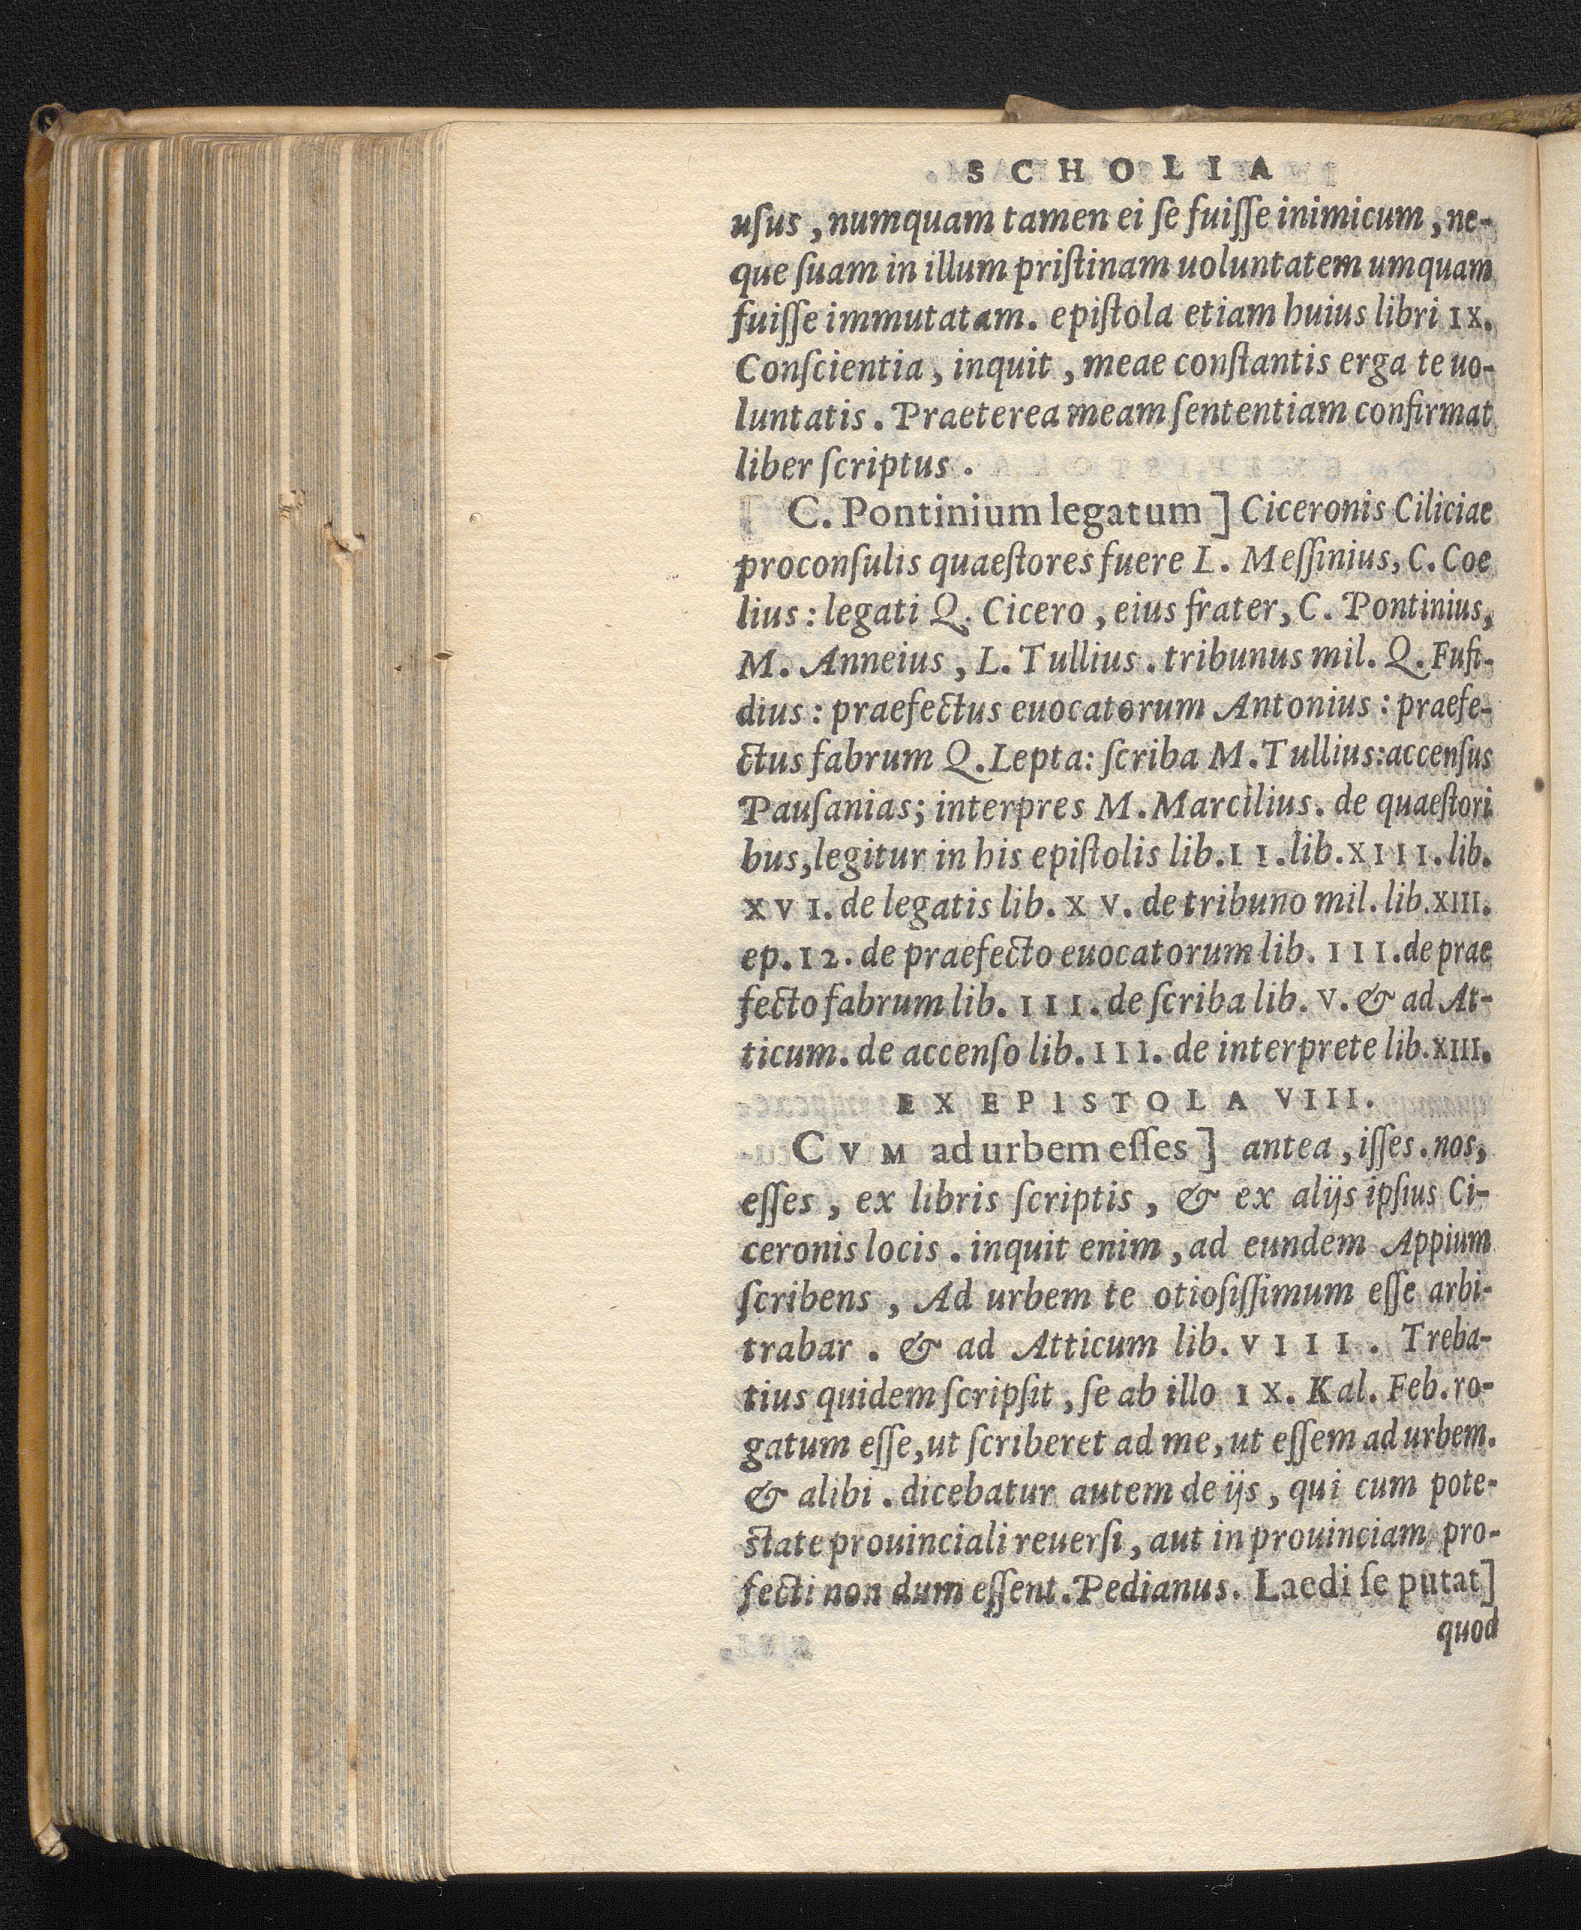 SCHOLIA
uſus, numquam tamen ei ſe fuiſſe inimicum, ne-
que ſuam in illum priſtinam uoluntatem umquam
fuiſſe immutatam. epiſtola etiam huius libri IX.
Conſcientia, inquit, meae conſtantis erga te uo-
luntatis. Praeterea meam ſententiam confirmat
liber ſcriptus.
C. Pontinium legatum] Ciceronis Ciliciae
proconſulis quaeſtores fuere L. Meſſinius, C. Coe
lius: legati Q. Cicero, eius frater, C. Pontinius,
M. Anneius, L. Tullius. tribunus mil. Q. Fufi-
dius: praefectus euocatorum Antonius: praefe-
ctus fabrum Q. Lepta: ſcriba M. Tullius: accenſus
Pauſanias; interpres M. Marcilius. de quaeſtori
bus, legitur in his epiſtolis lib. II. lib. XIII. lib.
XVI. de legatis lib. XV. de tribuno mil. lib. XIII.
ep. 12. de praefecto euocatorum lib. III. de prae
fecto fabrum lib. III. de ſcriba lib. V. & ad At-
ticum. de accenſo lib. III. de interprete lib. XIII.
EX EPISTOLA VIII.
CVM ad urbem eſſes] antea, iſſes. nos,
eſſes, ex libris ſcriptis, & ex alijs ipſius Ci-
ceronis locis. inquit enim, ad eundem Appium
ſcribens, Ad urbem te otioſiſſimum eſſe arbi-
trabar. & ad Atticum lib. VIII. Treba-
tius quidem ſcripſit, ſe ab illo IX. Kal. Feb. ro-
gatum eſſe, ut ſcriberet ad me, ut eſſem ad urbem.
& alibi. dicebatur autem de ijs, qui cum pote-
ſtate prouinciali reuerſi, aut in prouinciam pro-
fecti non dum eſſent. Pedianus. Laedi ſe putat]
quod